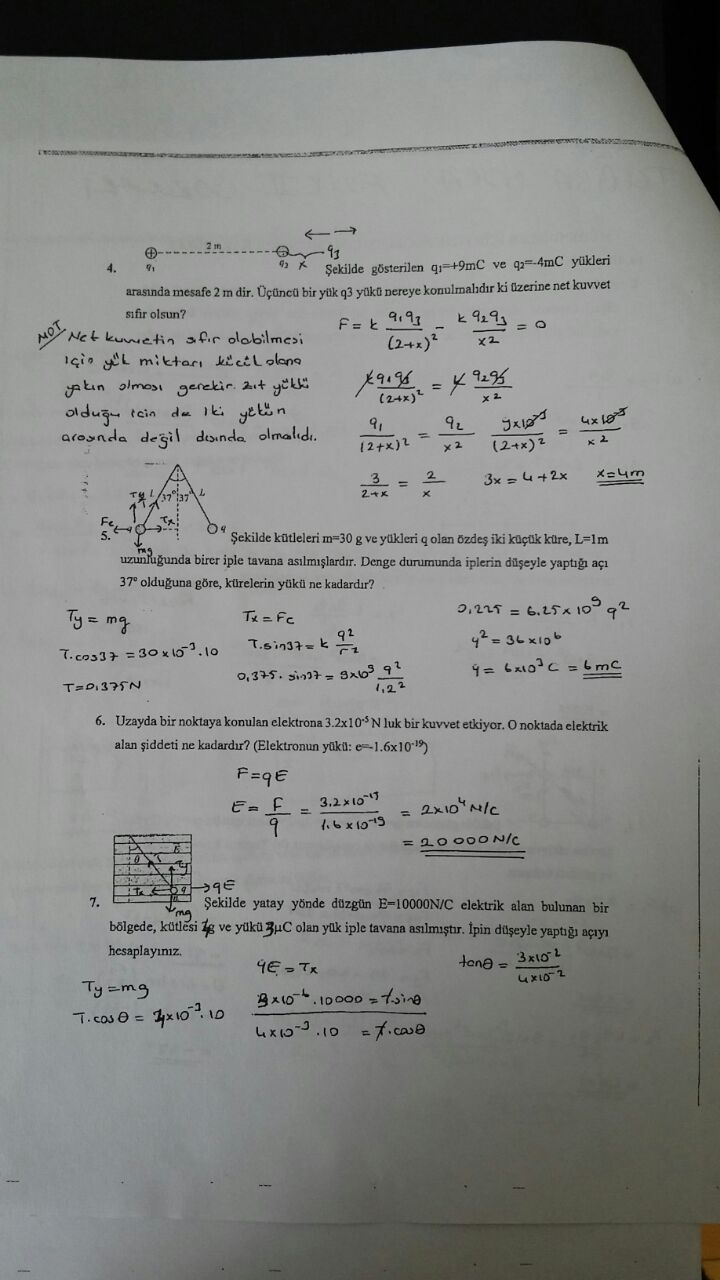 2 m
q1
q2
x
q3
4. Şekilde gösterilen q1=+9mC ve q2=-4mC yükleri
arasında mesafe 2 m dir. Üçüncü bir yük q3 yükü nereye konulmalıdır ki üzerine net kuvvet
sıfır olsun?
NOT
Net kuvvetin sıfır olabilmesi
için yük miktarı küçük olana
yakın olması gerekir. zıt yüklü
olduğu için de iki yükün
arasında değil dışında olmalıdı.
F = k q1q3/(2+x)² - k q2q3/x2 = 0
k q1q3/(2+x)² = k q2q3/x2
q1/(2+x)² = q2/x2   9x10⁻³/(2+x)² = 4x10⁻³/x2
3/2+x = 2/x   3x = 4+2x   x=4m
Ty L 37° 37° L
Fc q Tx q
mg
5. Şekilde kütleleri m=30 g ve yükleri q olan özdeş iki küçük küre, L=1m
uzunluğunda birer iple tavana asılmışlardır. Denge durumunda iplerin düşeyle yaptığı açı
37° olduğuna göre, kürelerin yükü ne kadardır?
Ty = mg
T.cos37 = 30x10⁻³.10
T=0,375N
Tx = Fc
T.sin37 = k q²/r2
0,375. sin37 = 9x10⁹ q²/1,2²
0,225 = 6.25x10⁹ q²
q² = 36x10⁶
q = 6x10³ C = 6mC
6. Uzayda bir noktaya konulan elektrona 3.2x10⁻⁵ N luk bir kuvvet etkiyor. O noktada elektrik
alan şiddeti ne kadardır? (Elektronun yükü: e=-1.6x10⁻¹⁹)
F=qE
E = F/q = 3,2x10⁻¹⁵/1.6x10⁻¹⁹ = 2x10⁴ N/C
= 20000N/C
E
θ T Ty
Tx q qE
mg
7. Şekilde yatay yönde düzgün E=10000N/C elektrik alan bulunan bir
bölgede, kütlesi 4g ve yükü 3µC olan yük iple tavana asılmıştır. İpin düşeyle yaptığı açıyı
hesaplayınız.
Ty=mg
T.cosθ = 4x10⁻³.10
qE = Tx
3x10⁻⁶.10000 = T.sinθ
4x10⁻³.10 = T.cosθ
tanθ = 3x10⁻²/4x10⁻²